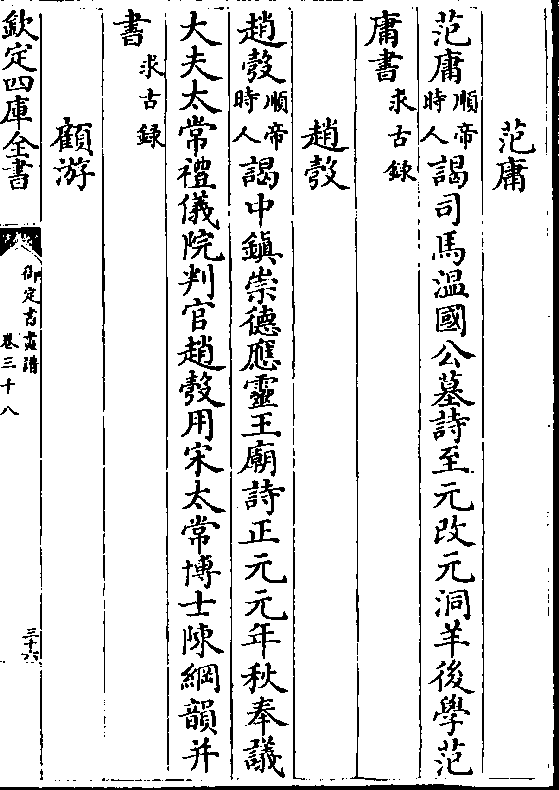 范庸
范庸順帝時人謁司馬溫國公墓詩至元改元洞羊後學范
庸書求古錄
趙彀
趙彀順帝時人謁中鎭崇德應靈王廟詩正元元年秋奉議
大夫太常禮儀院判官趙彀用宋太常博士陳綱韻并
書求古錄
顧游
欽定四庫全書
御定書畫譜
卷三十八
三十六